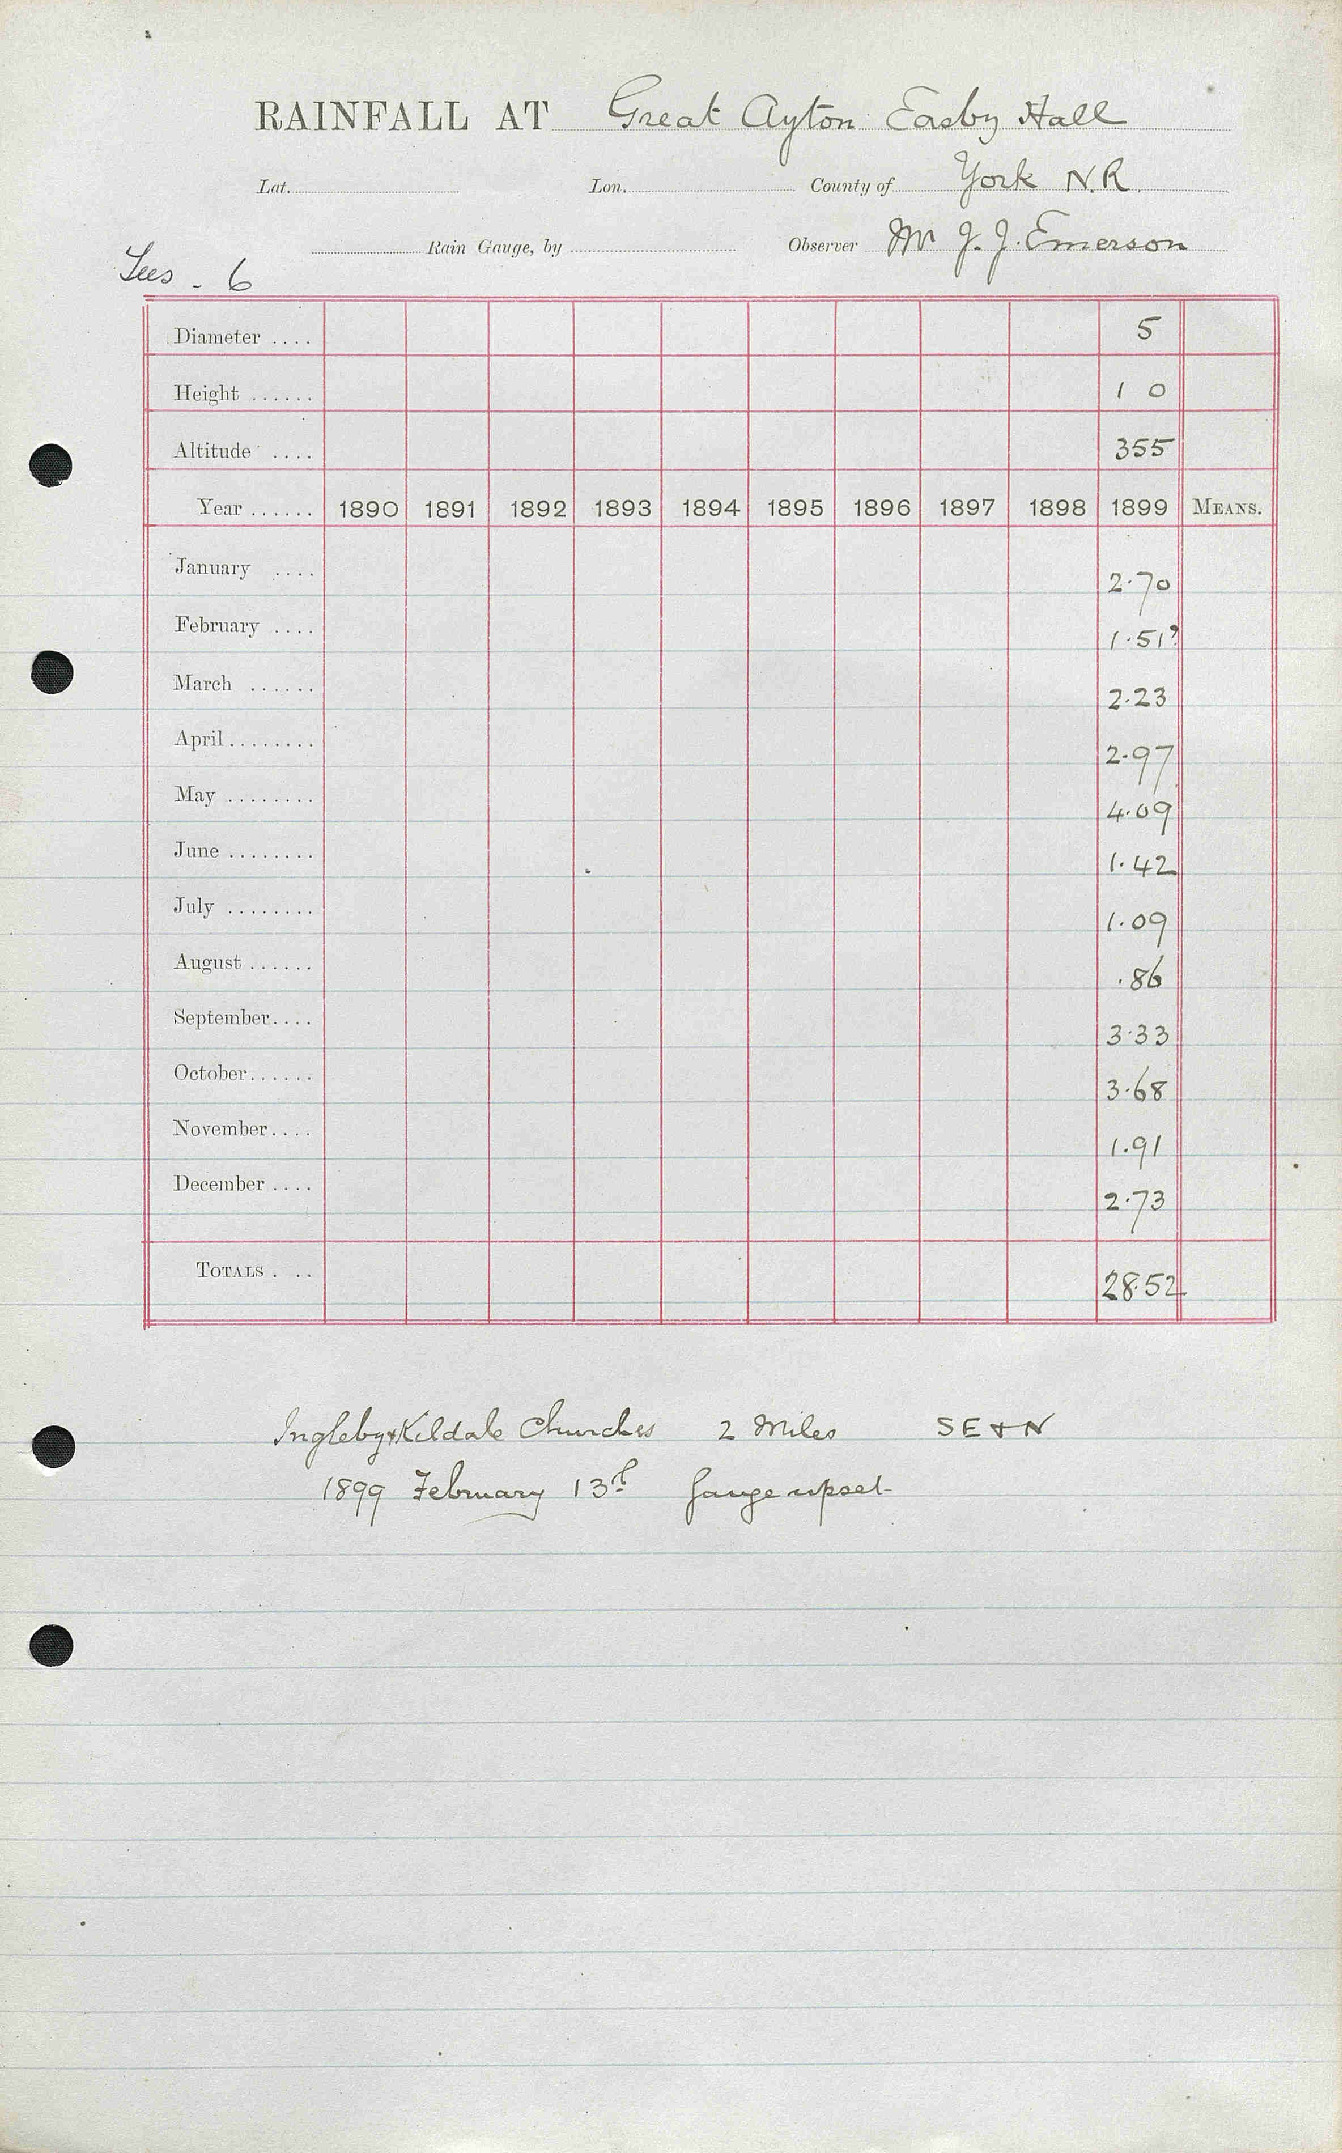 RAINFALL AT Great Ayton Easby Hall
Lat. Lon. County of York N.R.
Rain Gauge, by Observer Mr J. J. Emerson
Tees - 6
Diameter .... 5
Height ...... 1 0
Altitude .... 355
Year ...... 1890 1891 1892 1893 1894 1895 1896 1897 1898 1899 MEANS.
January .... 2.70
February .... 1.51?
March ...... 2.23
April........ 2.97
May ........ 4.09
June ........ 1.42
July ........ 1.09
August ...... .86
September.... 3.33
October...... 3.68
November.... 1.91
December .... 2.73
TOTALS . .. 28.52
Ingleby & Kildale Churches 2 Miles SE & N
1899 February 13th Gauge upset